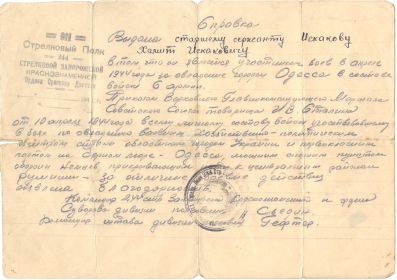 Справка
912
Стрелковый Полк
244
СТРЕЛКОВОЙ ЗАПОРОЖСКОЙ
КРАСНОЗНАМЕННОЙ
Ордена Суворова Дивизии
Выдана старшему сержанту Искакову
Халиту Искаковичу
в том что он является участником боев в апреле
1944 года за овладение городом Одесса в составе
войск 6 армии.
Приказом Верховного Главнокомандующего Маршала
Советского Союза товарища И.В. Сталина
от 10 апреля 1944 года всему личному составу войск участвовавшему
в боях по овладению важным хозяйственно-политическим
центром страны областным городом Украины и первоклассным
портом на Черном море - Одесса, мощным опорным пунктом
обороны немцев прикрывающим пути к центральным районам
Румынии - за отличные боевые действия
объявлена благодарность.
Командир 244 стр. Запорожской краснознаменной и ордена
Суворова дивизии полковник
штаба дивизии